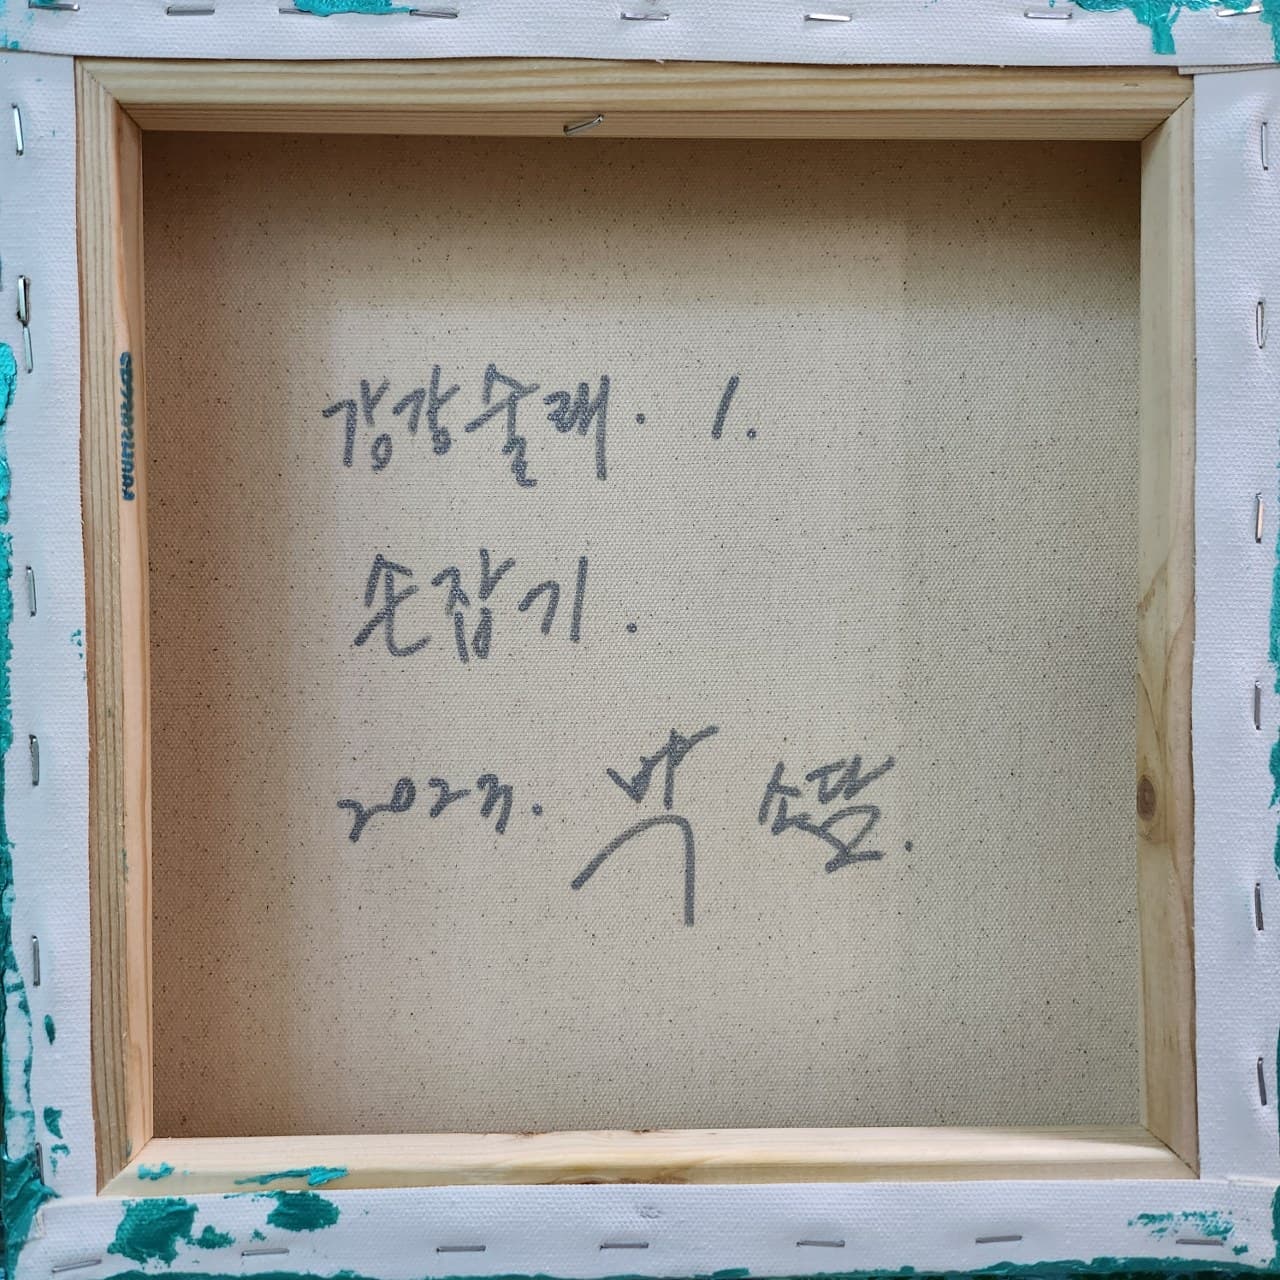 강강술래. 1.
손잡기.
2023. 박 소달.